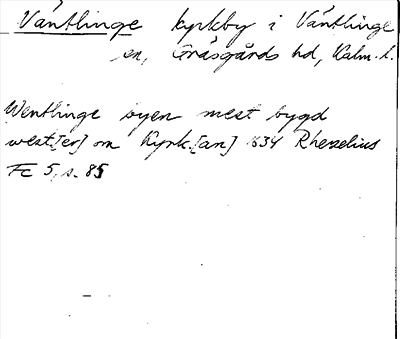 Väntlinge kyrkby i Väntlinge
sn, Gräsgårds hd, Kalm. l.
Wentlinge byen mest bygd
west[er] om Kyrk[an] 1634 Rhezelius
Fc 5, s. 85